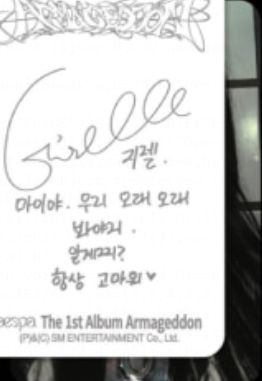 ARMAGEDDON
Giselle
지젤.
마이야. 우리 오래 오래
봐야지.
알게찌?
항상 고마워♥
aespa The 1st Album Armageddon
(P)&(C) SM ENTERTAINMENT Co., Ltd.